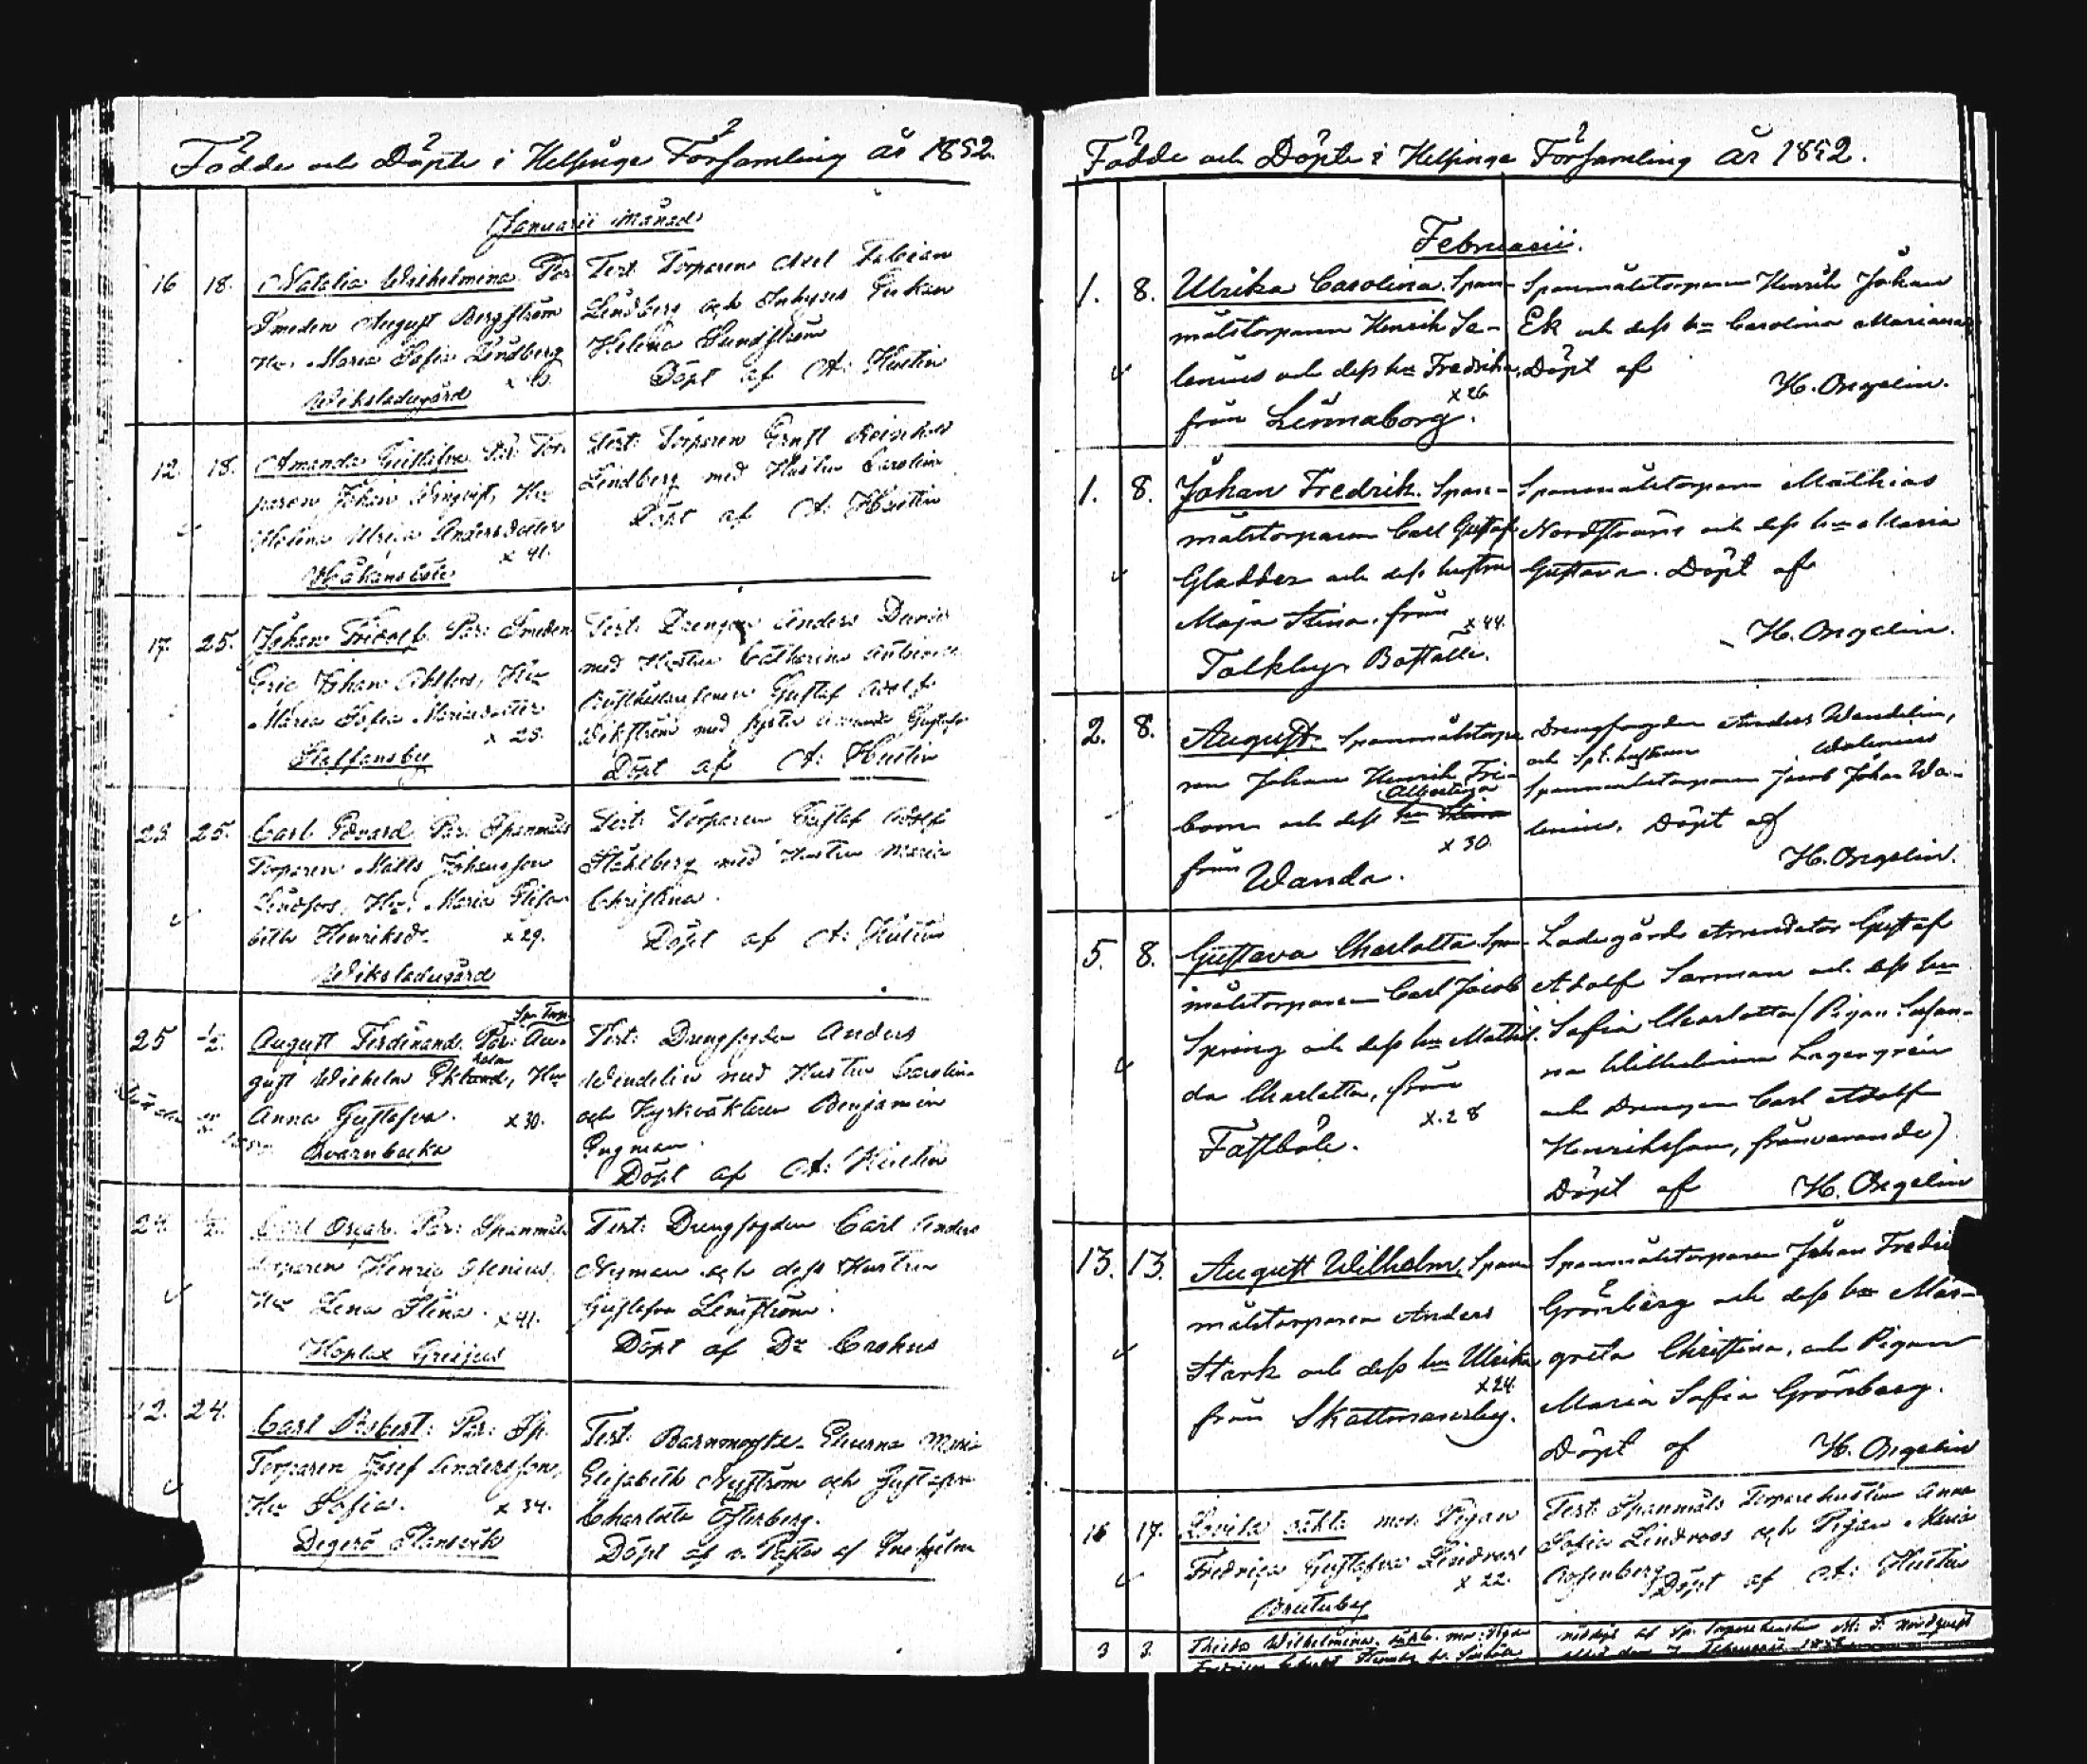 Födde och Döpte i Helsinge Församling år 1852.
Januarii Månad
16 18. Natalia Wilhelmina. Par:
Smeden August Bergström
Hu. Maria Sofia Lindberg
Wiksladugård
Test: Torparen Axel Fabian
Lindberg och Inhyses
Helena Sundström
Döpt af A: Hustin
12. 18. Amanda Gustafva. Par: Tor-
paren Johan Hu
Helena Ulrica Andersdotter
x 41.
Håkansböle
Test: Torparen Ernst Reinhold
Lindberg med Hustru Carolina
Döpt af A: Hustin
17. 25. Johan Fridolf. Par: Smeden
Eric Johan Hu
Maria Sofia
x 28.
Staffansby
Test: Drengen Anders
med Hustru Catharina
Gustaf Adolf
Wikström med syster Amanda Gustafva
Döpt af A: Hustin
23. 25. Carl Edvard. Par: Spanmåls
Torparen Matts Johansson
Lindfors, Hu: Maria Elisa-
beth Henriksd:
x 29.
Wiksladugård
Test: Torparen Gustaf Adolf
Ståhlberg med Hustru Maria
Christina.
Döpt af A: Hustin
25 ½. August Ferdinand. Par: Au-
Spm Torp.
gust Wilhelm Hu
Anna Gustafva. x 30.
Qvarnbacka
Test: Drengfogden Anders
Wendelin med Hustru Carolina
och Kyrkväktaren Benjamin
Engman.
Döpt af A: Hustin
24. ½. Carl Oscar. Par: Spanmåls
torparen Henric
Hu Lena Stina. x 41.
Hoplax Greijus
Test: Drengfogden Carl Anders
Nyman och dess Hustru
Gustafva Lenström.
Döpt af Dr Crohns
12. 24. Carl Robert. Par: Sp.
Torparen Josef Andersson,
Hu Sofia. x 34.
Degerö Stansvik
Test: Barnmorske Eleverna Maria
Elisabeth Nyström och Gustafva
Charlotta Österberg.
Döpt af v. Pastor
Födde och Döpte i Helsinge Församling År 1852.
Februarii.
1. 8. Ulrika Carolina. Span-
målstorparen Henrik Se-
lenius och dess hu Fredrika,
x 26
från Linnaborg.
Spanmålstorparen Henrik Johan
Ek och dess hu Carolina Mariana
Döpt af
H. Ongelin.
1. 8. Johan Fredrik. Span-
målstorparen Carl Gustaf
Gladder och dess hustru
Maja Stina, från
x 44.
Tolkby Boställe.
Spanmålstorparen Mathias
Nordström och dess hu Maria
Gustava. Döpt af
H. Ongelin.
2. 8. August. Spanmålstorpa-
ren Johan Henrik Fri-
Albertina
bom och dess hu
x 30.
från Wanda.
Drengfogden Anders Wendelin,
och Sp.t. hustrun Walenius
Spanmålstorparen Jacob Johan Wa-
lenius. Döpt af
H. Ongelin.
5. 8. Gustava Charlotta. Span-
målstorparen Carl Jacob
Spring och dess hu Mathil-
da Charlotta, från
x.28
Fastböle.
Ladugårds Arrendator Gustaf
Adolf Sarman och dess hu
Sofia Charlotta (Pigan Susan-
na Wilhelmina Lagergrén
och Drengen Carl Adolf
Henriksson, frånvarande)
Döpt af H. Ongelin
13. 13. August Wilhelm. Span-
målstorparen Anders
Stark och dess hu Ulrika
x 24.
från Skattmansby.
Spanmålstorparen Johan Fredri
Grönberg och dess hu Mar-
greta Christina, och Pigan
Maria Sofia Grönberg.
Döpt af H. Ongelin
16 17. Lovisa oäkta mor. Pigan
Fredrica Gustafva Lindroos
x 22.
Brutuby
Test: Spanmåls Torparehustrun Anna
Sofia Lindroos och Pigan Maria
Rosenberg. Döpt af A: Hustin
3 3. Wilhelmina. oäkta. mor: Pigan
nöddöpt af Sp: Torparehustrun M: S: Nordqvist